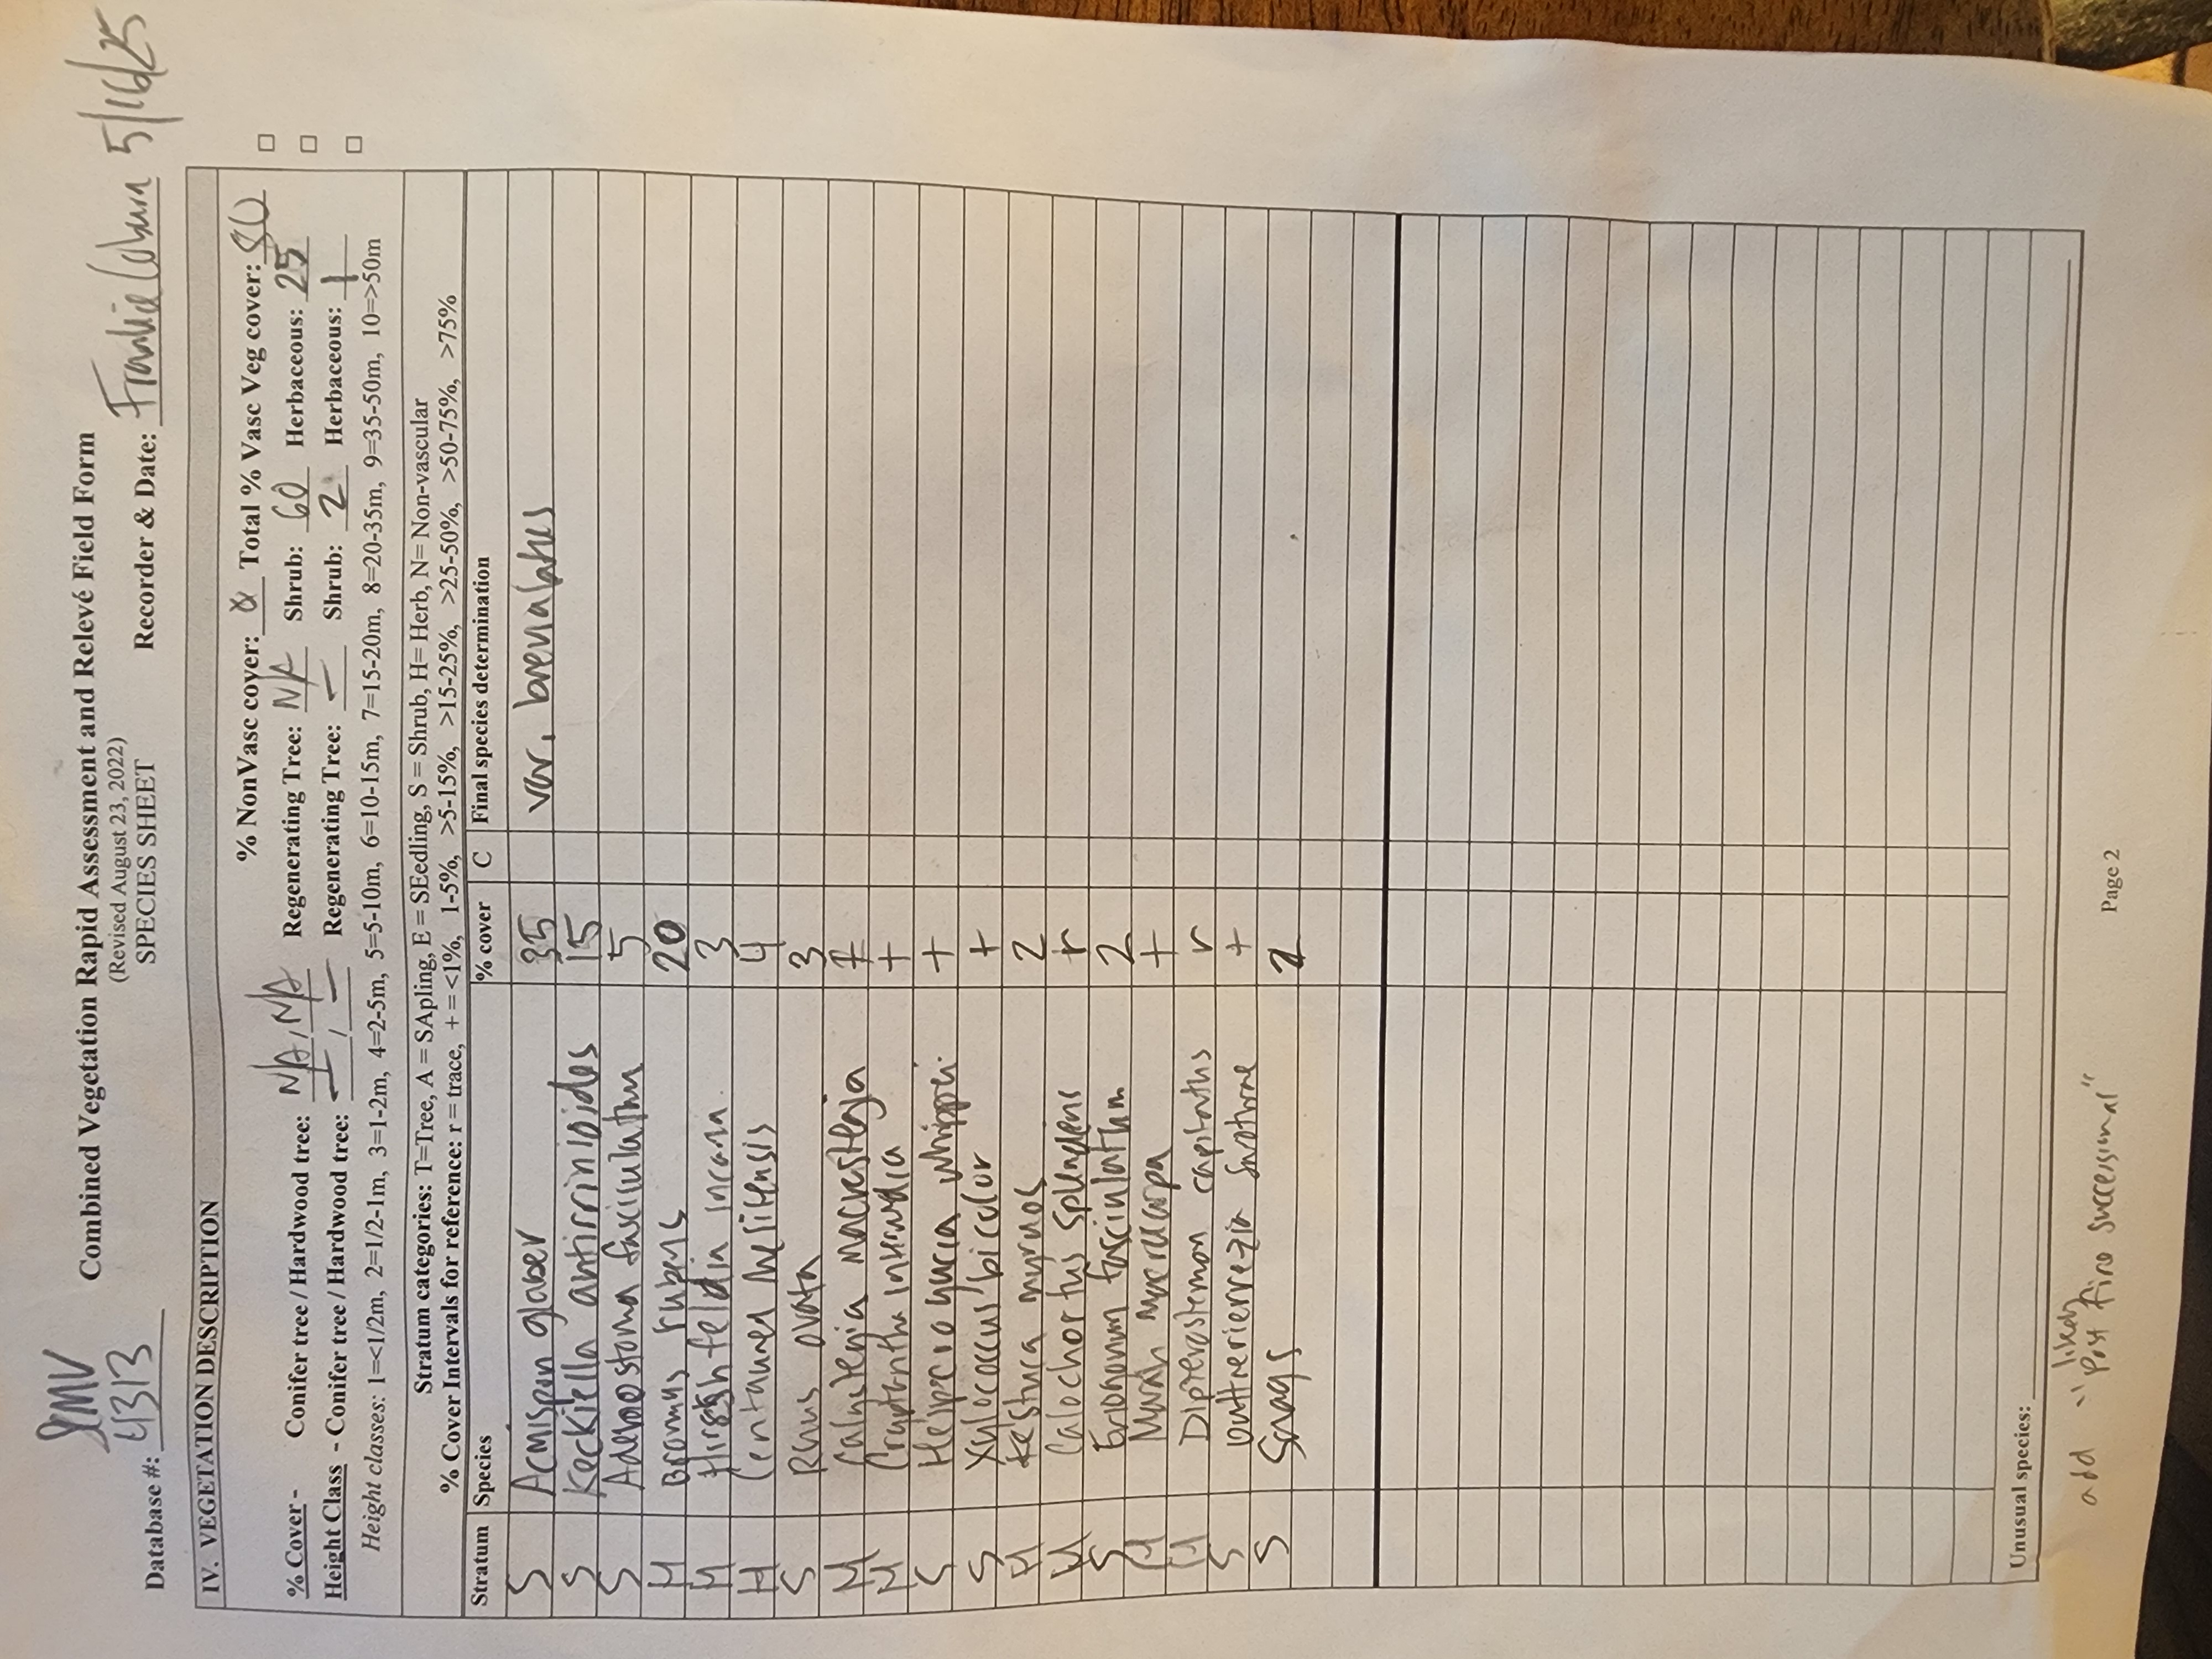 Combined Vegetation Rapid Assessment and Relevé Field Form
(Revised August 23, 2022)
SPECIES SHEET
SMV
Database #: 4313 Recorder & Date: Frankie Coburn 5/16/25
IV. VEGETATION DESCRIPTION
% NonVasc cover: Total % Vasc Veg cover: 80
% Cover - Conifer tree / Hardwood tree: NA, NA Regenerating Tree: NA Shrub: 60 Herbaceous: 25
Height Class - Conifer tree / Hardwood tree: –, – Regenerating Tree: – Shrub: 2 Herbaceous: 1
Height classes: 1=<1/2m, 2=1/2-1m, 3=1-2m, 4=2-5m, 5=5-10m, 6=10-15m, 7=15-20m, 8=20-35m, 9=35-50m, 10=>50m
Stratum categories: T=Tree, A = SApling, E = SEedling, S = Shrub, H= Herb, N= Non-vascular
% Cover Intervals for reference: r = trace, + = <1%, 1-5%, >5-15%, >15-25%, >25-50%, >50-75%, >75%
Stratum Species % cover C Final species determination
S Acmispon glaber 35 var. brevialatus
S Keckiella antirrinioides 15
S Adenostoma fasciculatum 5
H Bromus rubens 20
H Hirschfeldia incana 3
H Centaurea melitensis 4
S Rhus ovata 3
H Calystegia macrostegia +
H Cryptantha intermedia +
S Hesperoyucca whipplei +
S Xylococcus bicolor +
H Festuca myuros 2
H Calochortus splendens r
S Eriogonum fasciculatum 2
H Marah macrocarpa +
H Dipterostemon capitatus r
S Gutierrezia sarothrae +
S Snags 2
Unusual species:
add "likely post fire successional"
Page 2